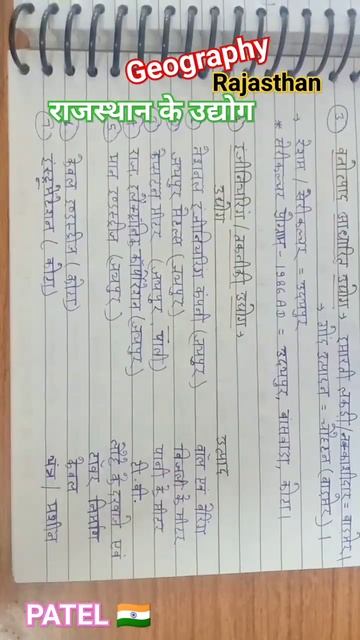 Geography
Rajasthan
राजस्थान के उद्योग
③ वनों पर आधारित उद्योग → इमारती लकड़ी/नक्काशीदार = बाड़मेर।
→ गोंद उत्पादन = चौहटन (बाड़मेर)।
→ रेशम / सेरीकल्चर = उदयपुर
* सेरीकल्चर प्रोग्राम - 1986 AD = उदयपुर, बांसवाड़ा, कोटा।
इंजीनियरिंग / तकनीकी उद्योग →
उद्योग उत्पाद
नेशनल इंजीनियरिंग कंपनी (जयपुर) बाल एवं बेरिंग
जयपुर मेटल्स (जयपुर) बिजली के मीटर
कैप्सटन मीटर (जयपुर, पाली) पानी के मीटर
राज. इलेक्ट्रॉनिक कॉर्पोरेशन (जयपुर) टी.वी.
⑤ मान इण्डस्ट्रीज (जयपुर) लोहे के दरवाजे एवं
टावर निर्माण
केबल इण्डस्ट्रीज (कोटा) केबल
⑦ इंस्ट्रूमेंटेशन (कोटा) यंत्र / मशीन
PATEL 🇮🇳